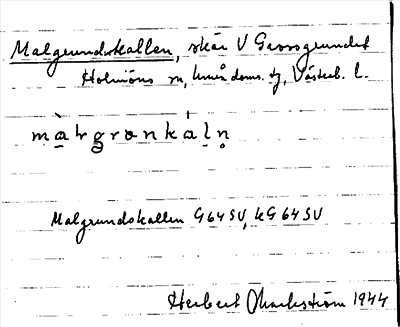 Malgrundskallen, skär V Gassgrundet
Holmöns sn, Umeå doms. tg, Västerb. l.
màlgrønkáln̥
Malgrundskallen G64SV, kG64SV
Herbert Markström 1944